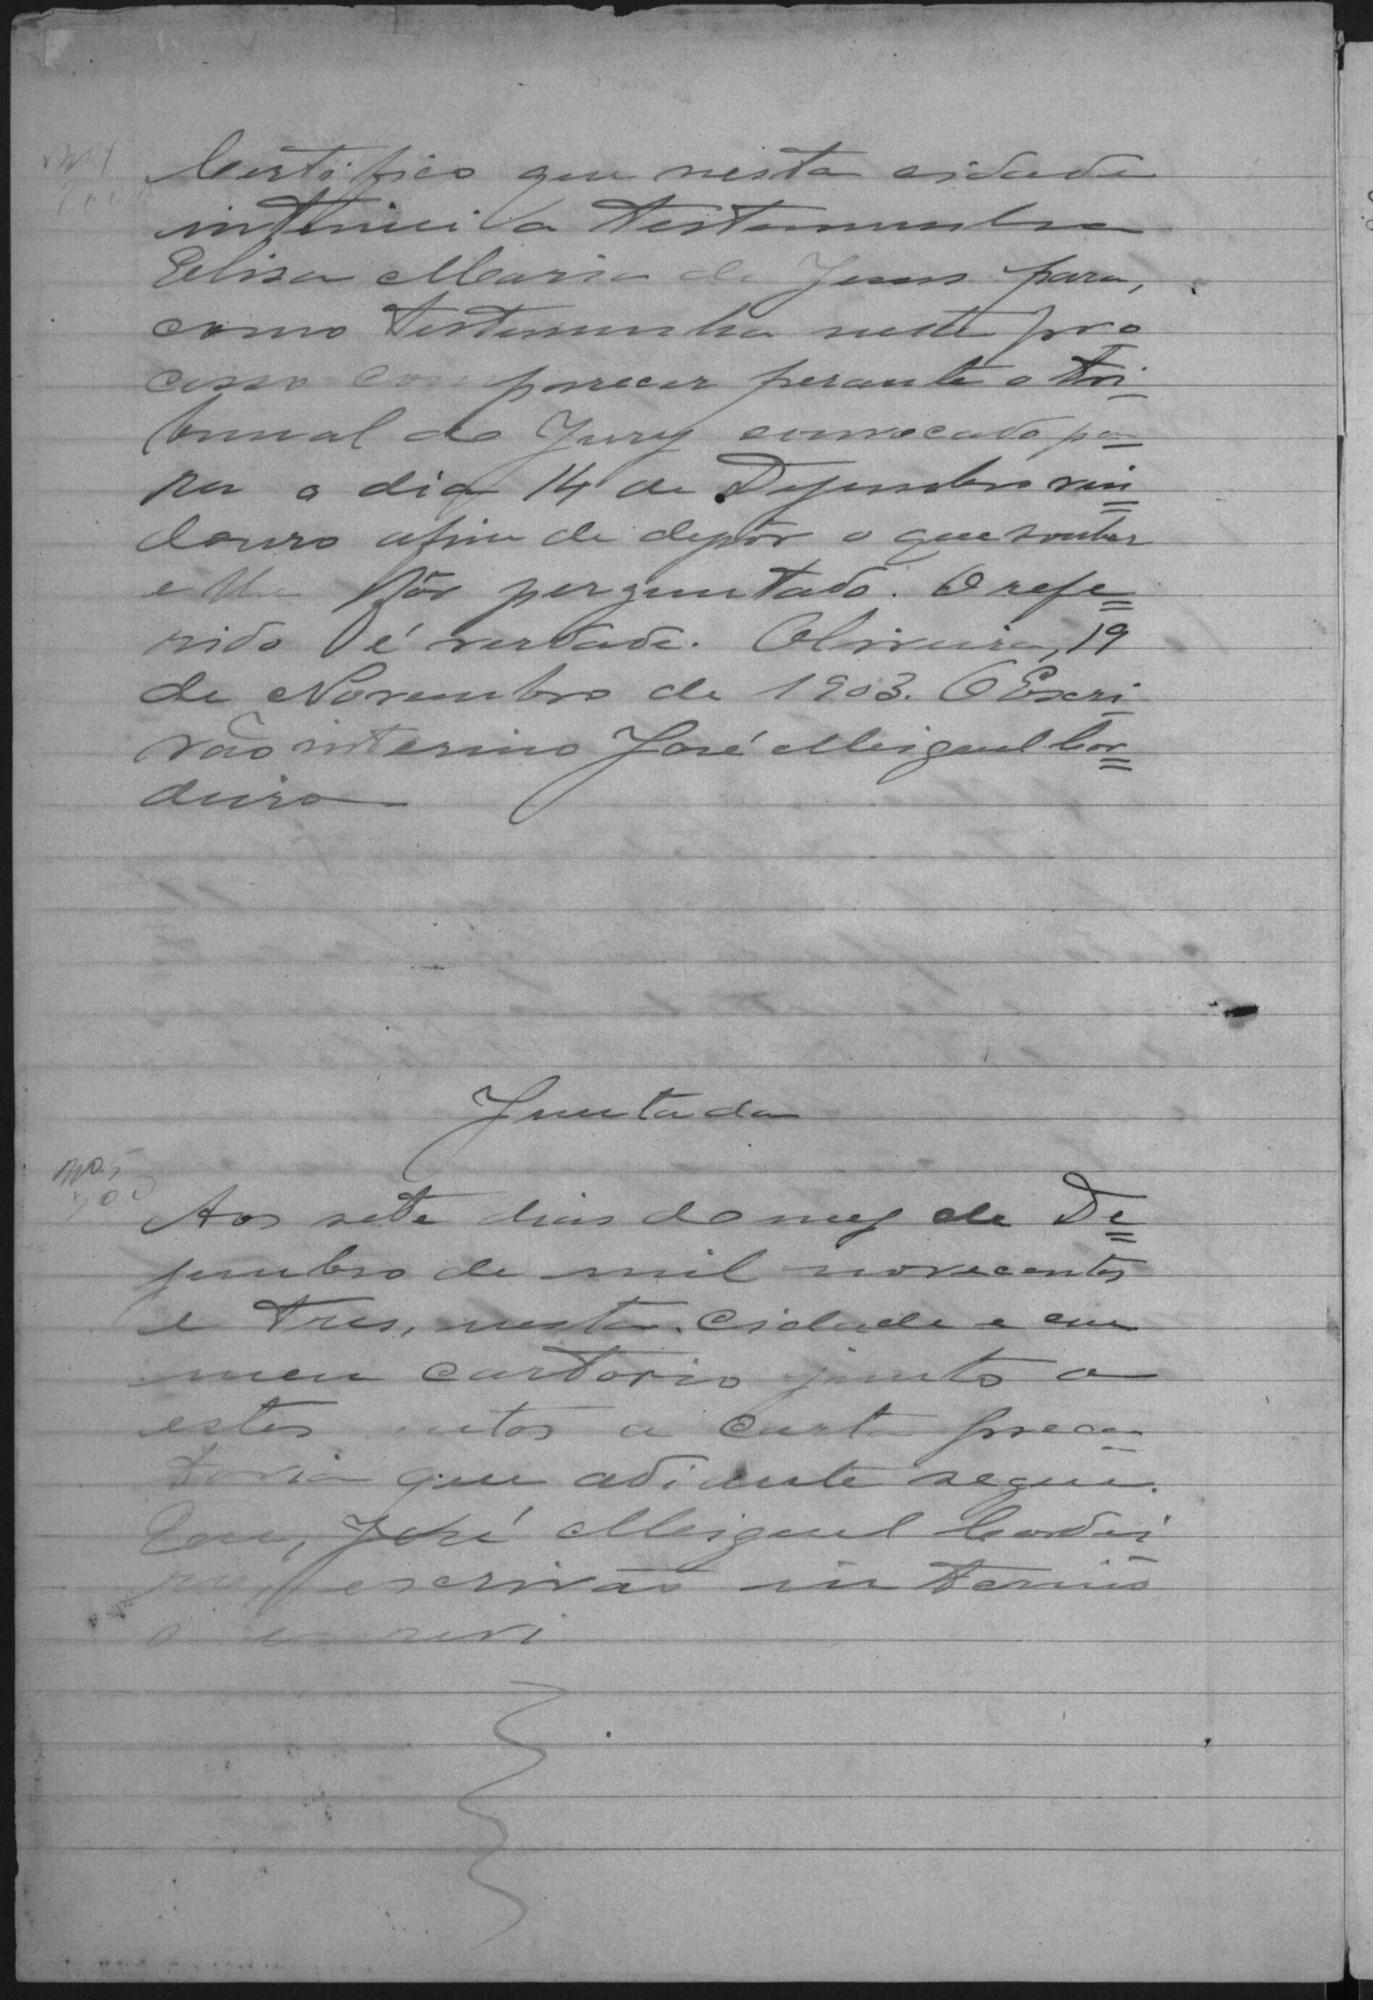 Certifico que nesta cidade
intimei a testemunha
Elisa Maria de Jesus para,
como testemunha neste pro
cesso comparecer perante o Tri-
bunal do Jury convocado pa=
ra o dia 14 de Dezembro vin=
douro afim de depôr o que souber
e lhe fôr perguntado. O refe=
rido é verdade. Oliveira, 19
de Novembro de 1903. O Escri=
vão interino José Meiguel Cor=
deiro
Juntada
Aos sete dias do mez de De=
zembro de mil novecentos
e tres, nesta cidade e em
meu cartorio junto a
estes autos a carta preca-
toria que adiante segue.
Eu, José Meiguel Cordei
ro, escrivão interino
o escrevi